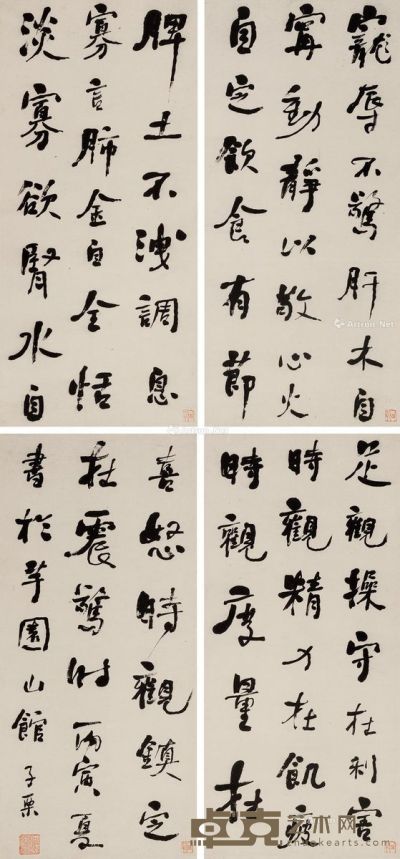 寵辱不驚肝木自
寧動靜以敬心火
自定飲食有節
脾土不洩調息
寡言肺金自全恬
淡寡欲腎水自
足觀操守在利害
時觀精力在飢疲
時觀度量在
喜怒時觀鎮定
在震驚時 丙寅夏
書於園山館 子栗
卓克艺术网
www.zhuokearts.com